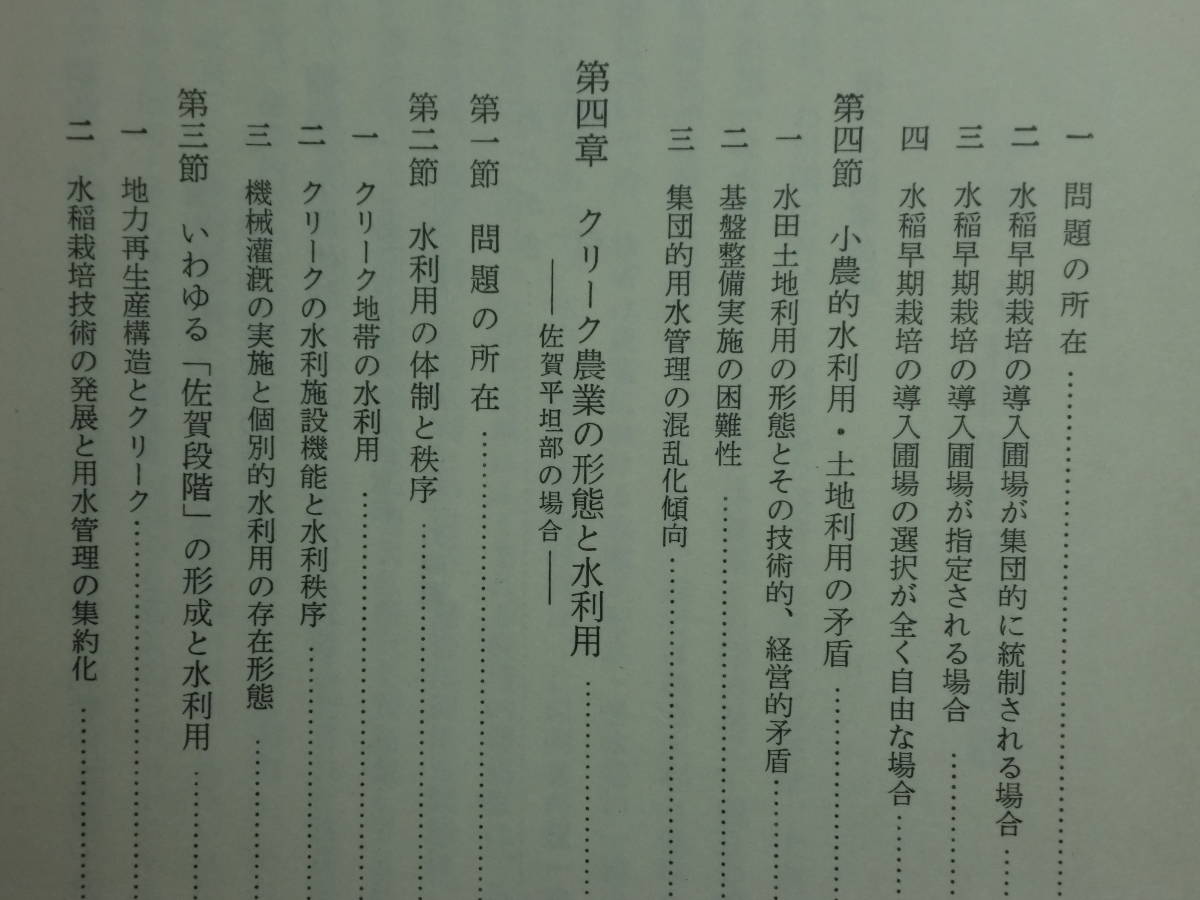 一　問題の所在……………………………
二　水稲早期栽培の導入圃場が集団的に統制される場合……
三　水稲早期栽培の導入圃場が指定される場合…………
四　水稲早期栽培の導入圃場の選択が全く自由な場合……
第四節　小農的水利用・土地利用の矛盾……………
一　水田土地利用の形態とその技術的、経営的矛盾………
二　基盤整備実施の困難性……………………
三　集団的用水管理の混乱化傾向…………………
第四章　クリーク農業の形態と水利用……………
――佐賀平坦部の場合――
第一節　問題の所在………………………
第二節　水利用の体制と秩序…………………
一　クリーク地帯の水利用……………………
二　クリークの水利施設機能と水利秩序……………
三　機械灌漑の実施と個別的水利用の存在形態…………
第三節　いわゆる「佐賀段階」の形成と水利用………
一　地力再生産構造とクリーク…………………
二　水稲栽培技術の発展と用水管理の集約化…………